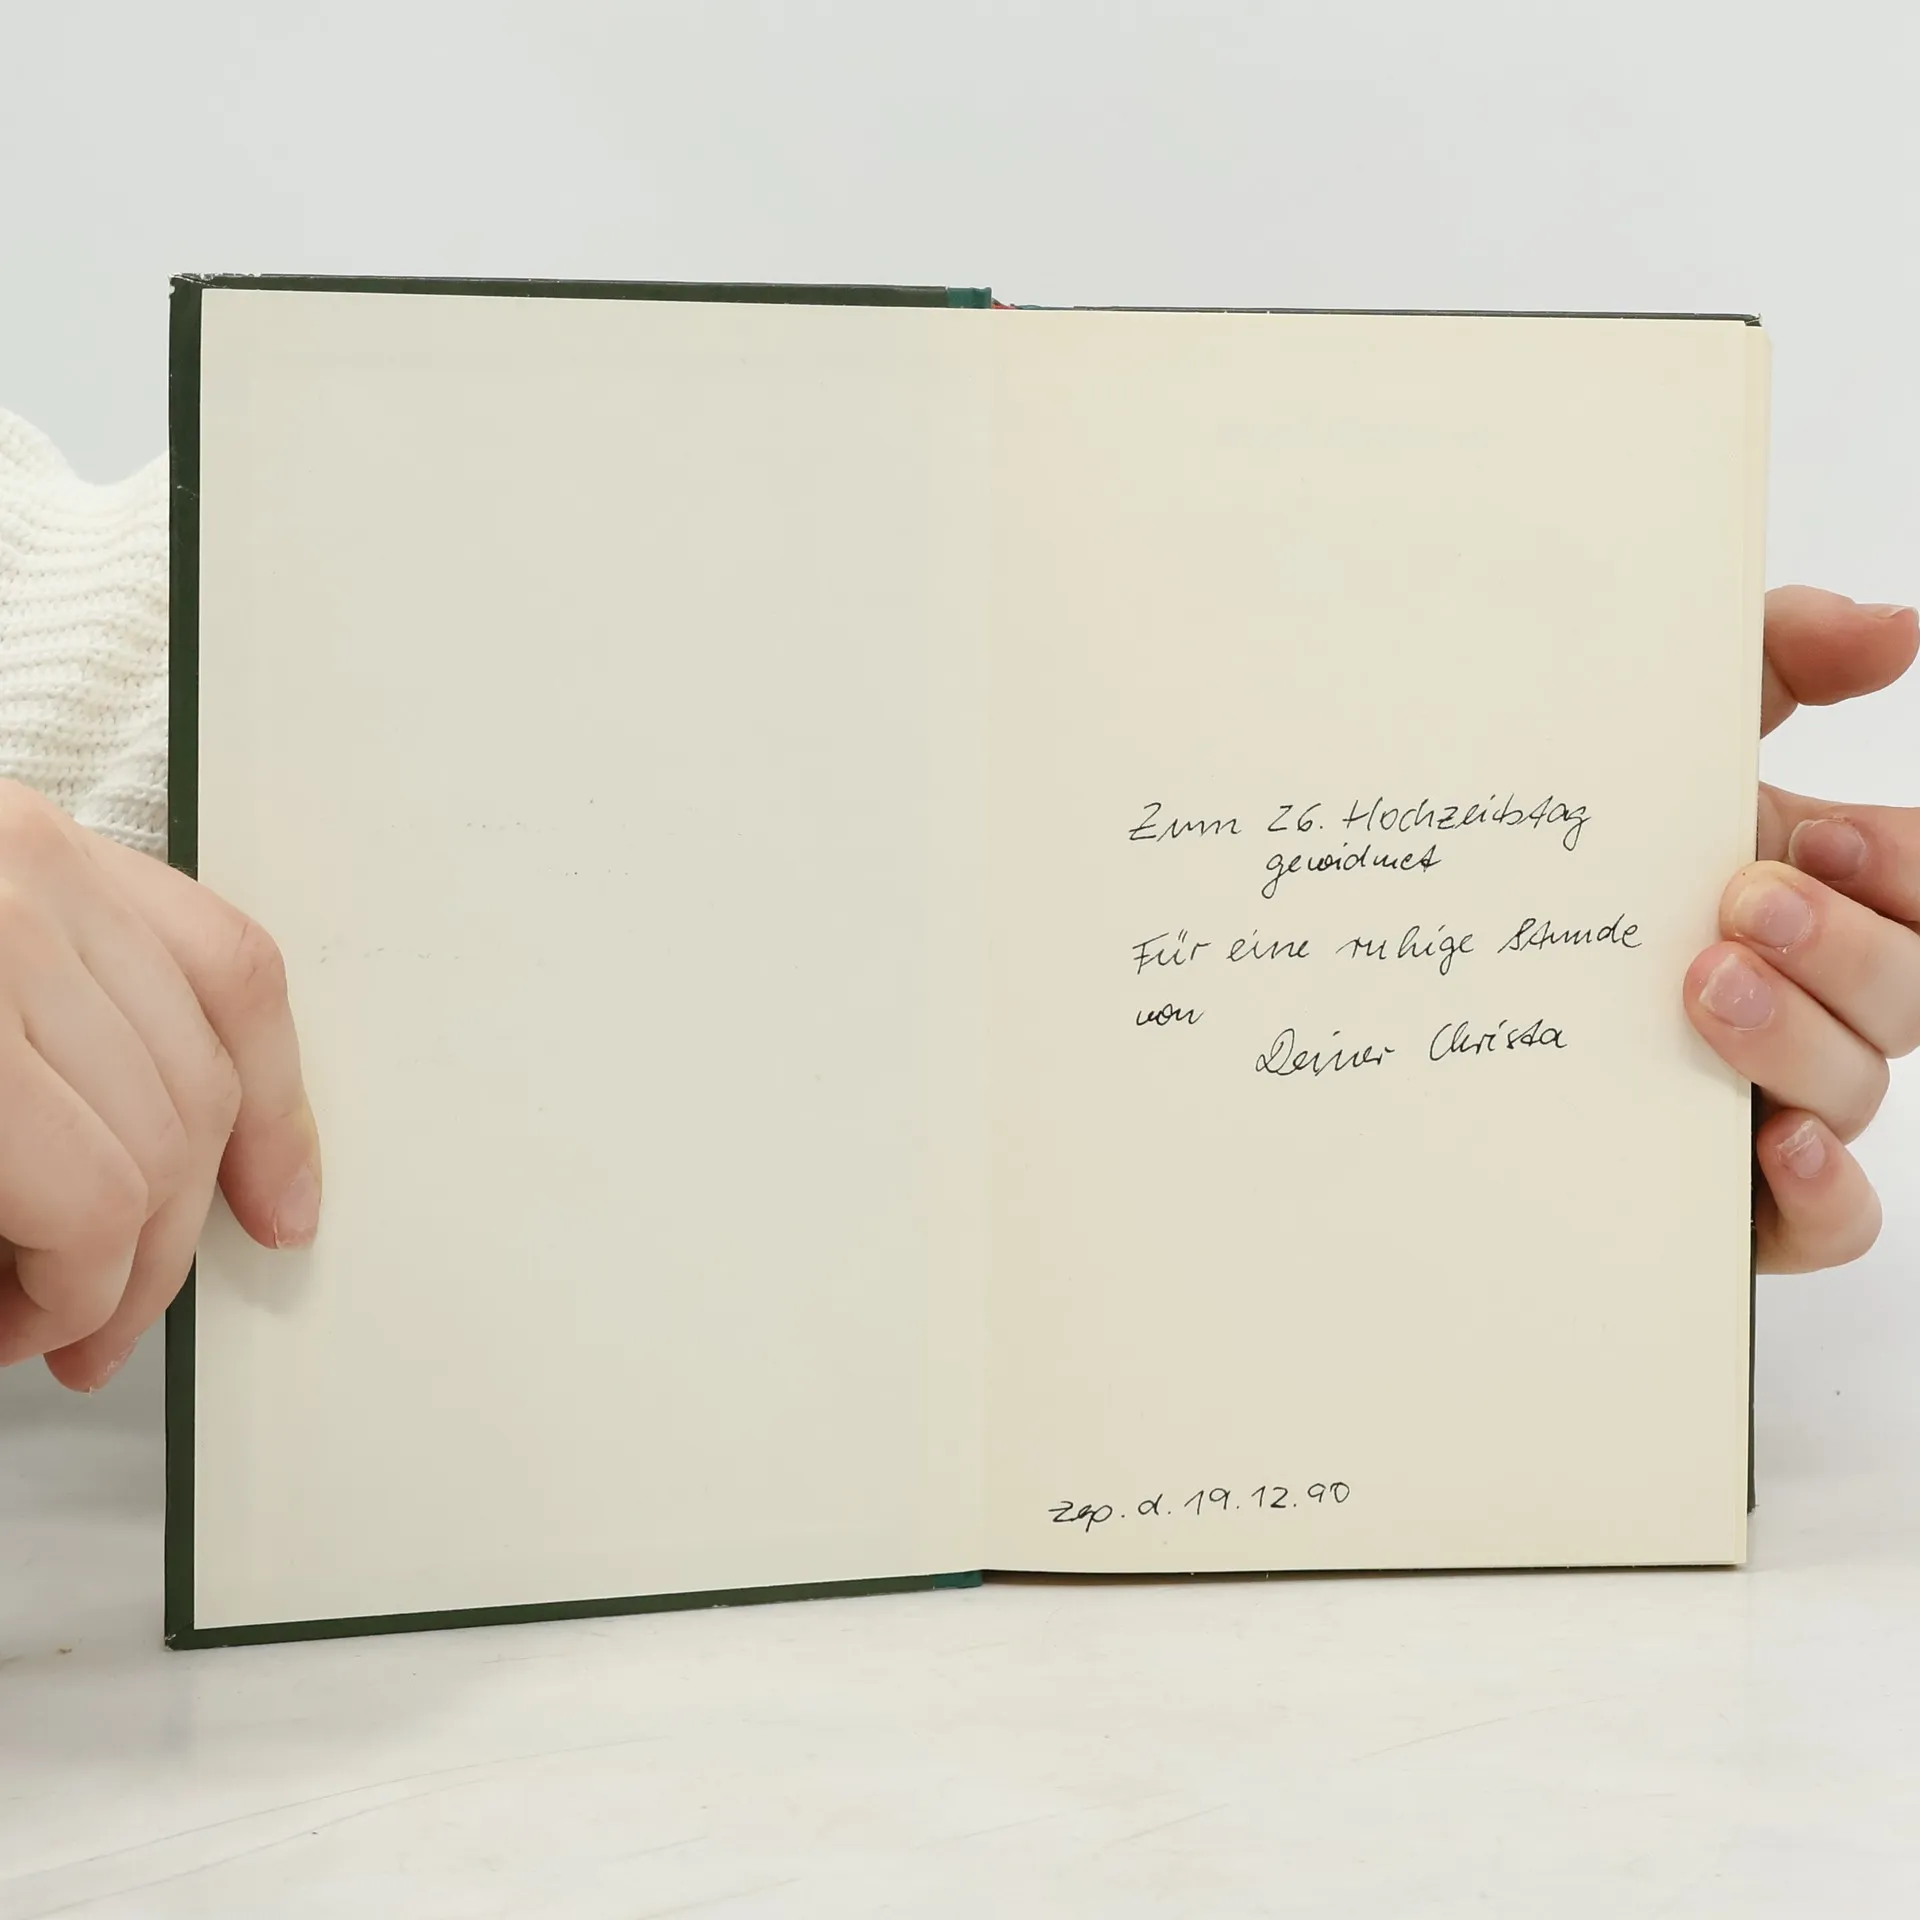 Zum 26. Hochzeitstag
gewidmet
Für eine ruhige Stunde
von
Deiner Christa
Zep. d. 19.12.90